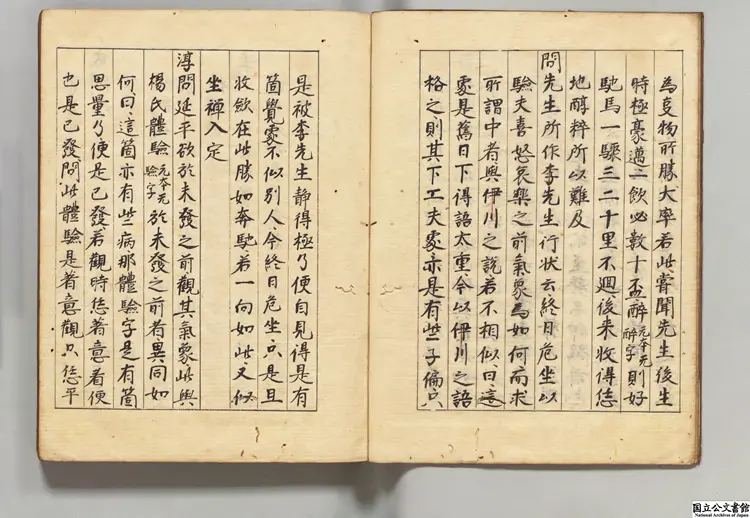 為事物所勝大率若此甞聞先生後生
時極豪邁一飲必數十盃醉元本元醉字則好
馳馬一驟三二十里不廻後来收得恁
地醇粹所以難及
問先生所作李先生行状云終日危坐以
驗夫喜怒哀樂之前氣象為如何而求
所謂中者與伊川之説若不相似曰這
處是舊日下得語太重今以伊川之語
格之則其下工夫處亦是有些子偏只
是被李先生静得極乃便自見得是有
箇覺處不似別人今終日危坐只是且
收斂在此勝如奔馳若一向如此又似
坐禅入定
淳問延平欲於未發之前觀其氣象此與
楊氏體驗元本元驗字於未發之前者異同如
何曰這箇亦有些病那體驗字是有箇
思量乃便是已發若觀時恁著意看便
也是已發問此體驗是著意觀只恁平
国立公文書館
National Archives of Japan